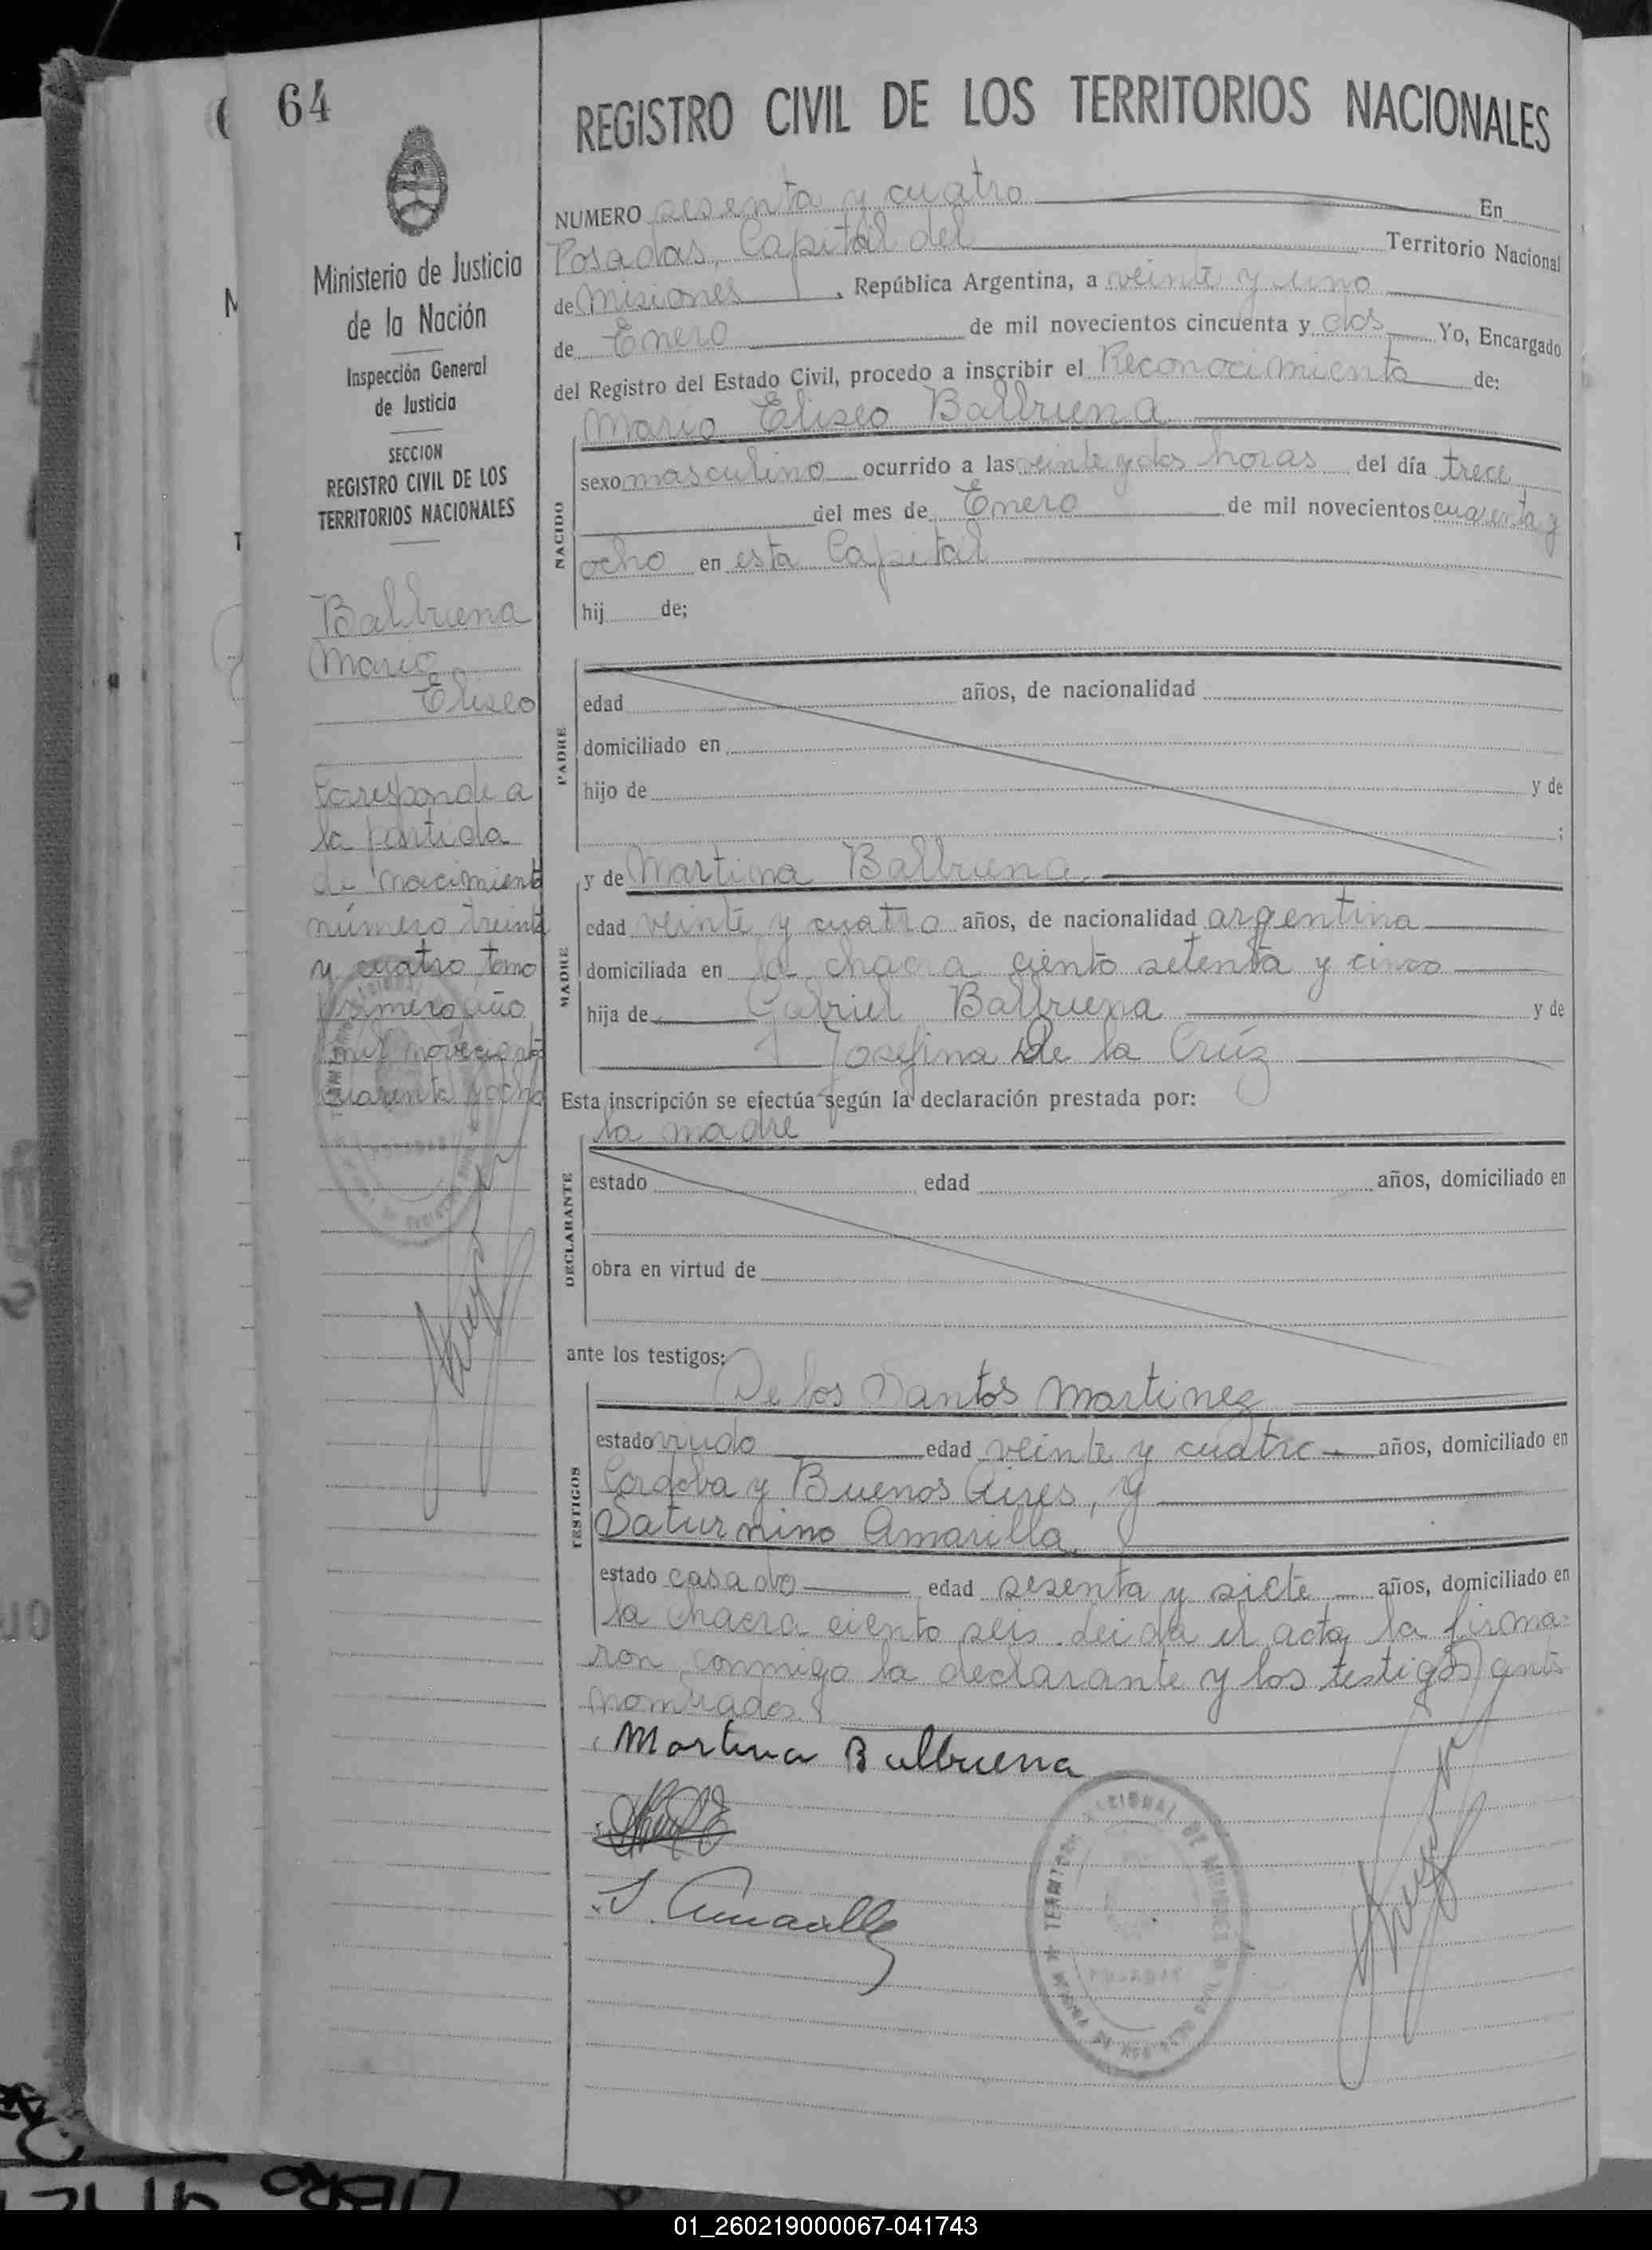 64
REGISTRO CIVIL DE LOS TERRITORIOS NACIONALES
Ministerio de Justicia
de la Nación
Inspección General
de Justicia
SECCION
REGISTRO CIVIL DE LOS
TERRITORIOS NACIONALES
Balbuena
Mario
Eliseo
Corresponde a
la partida
de nacimiento
número treinta
y cuatro tomo
primero año
mil novecientos
cuarenta y ocho
NUMERO sesenta y cuatro En
Posadas, Capital del Territorio Nacional
de Misiones, República Argentina, a veinte y uno
de Enero de mil novecientos cincuenta y dos Yo, Encargado
del Registro del Estado Civil, procedo a inscribir el Reconocimiento de:
NACIDO
Mario Eliseo Balbuena
sexo masculino ocurrido a las veinte y dos horas del día trece
del mes de Enero de mil novecientos cuarenta y
ocho en esta Capital
hij de;
PADRE
edad años, de nacionalidad
domiciliado en
hijo de y de
;
MADRE
y de Martina Balbuena
edad veinte y cuatro años, de nacionalidad argentina
domiciliada en la chacra ciento setenta y cinco
hija de Gabriel Balbuena y de
Josefina De la Crúz
Esta inscripción se efectúa según la declaración prestada por:
la madre
DECLARANTE
estado edad años, domiciliado en
obra en virtud de
ante los testigos:
TESTIGOS
De los Santos Martinez
estado viudo edad veinte y cuatro años, domiciliado en
Córdoba y Buenos Aires, y
Saturnino Amarilla
estado casado edad sesenta y siete años, domiciliado en
la chacra ciento seis. Leida el acta, la firma-
ron conmigo la declarante y los testigos ante
nombrados.
Martina Balbuena
S. Amarilla
TERRITORIO NACIONAL DE MISIONES
POSADAS
LIBRO
01_260219000067-041743